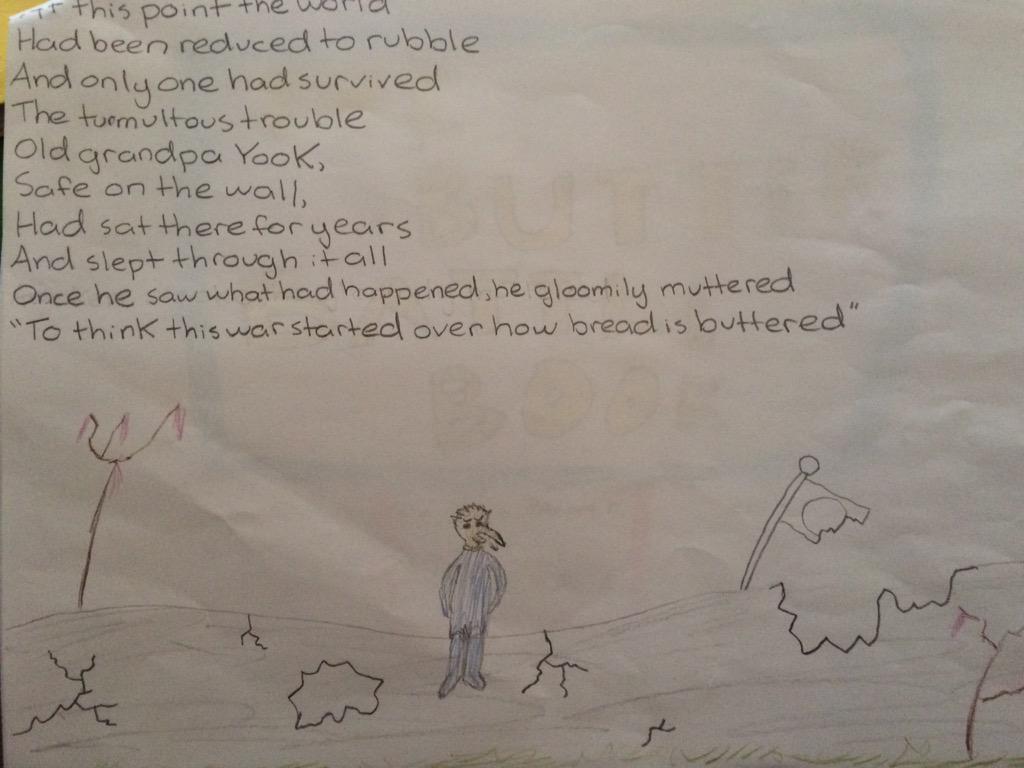 At this point the world
Had been reduced to rubble
And only one had survived
The turmultous trouble
Old grandpa Yook,
Safe on the wall,
Had sat there for years
And slept through it all
Once he saw what had happened, he gloomily muttered
"To think this war started over how bread is buttered"